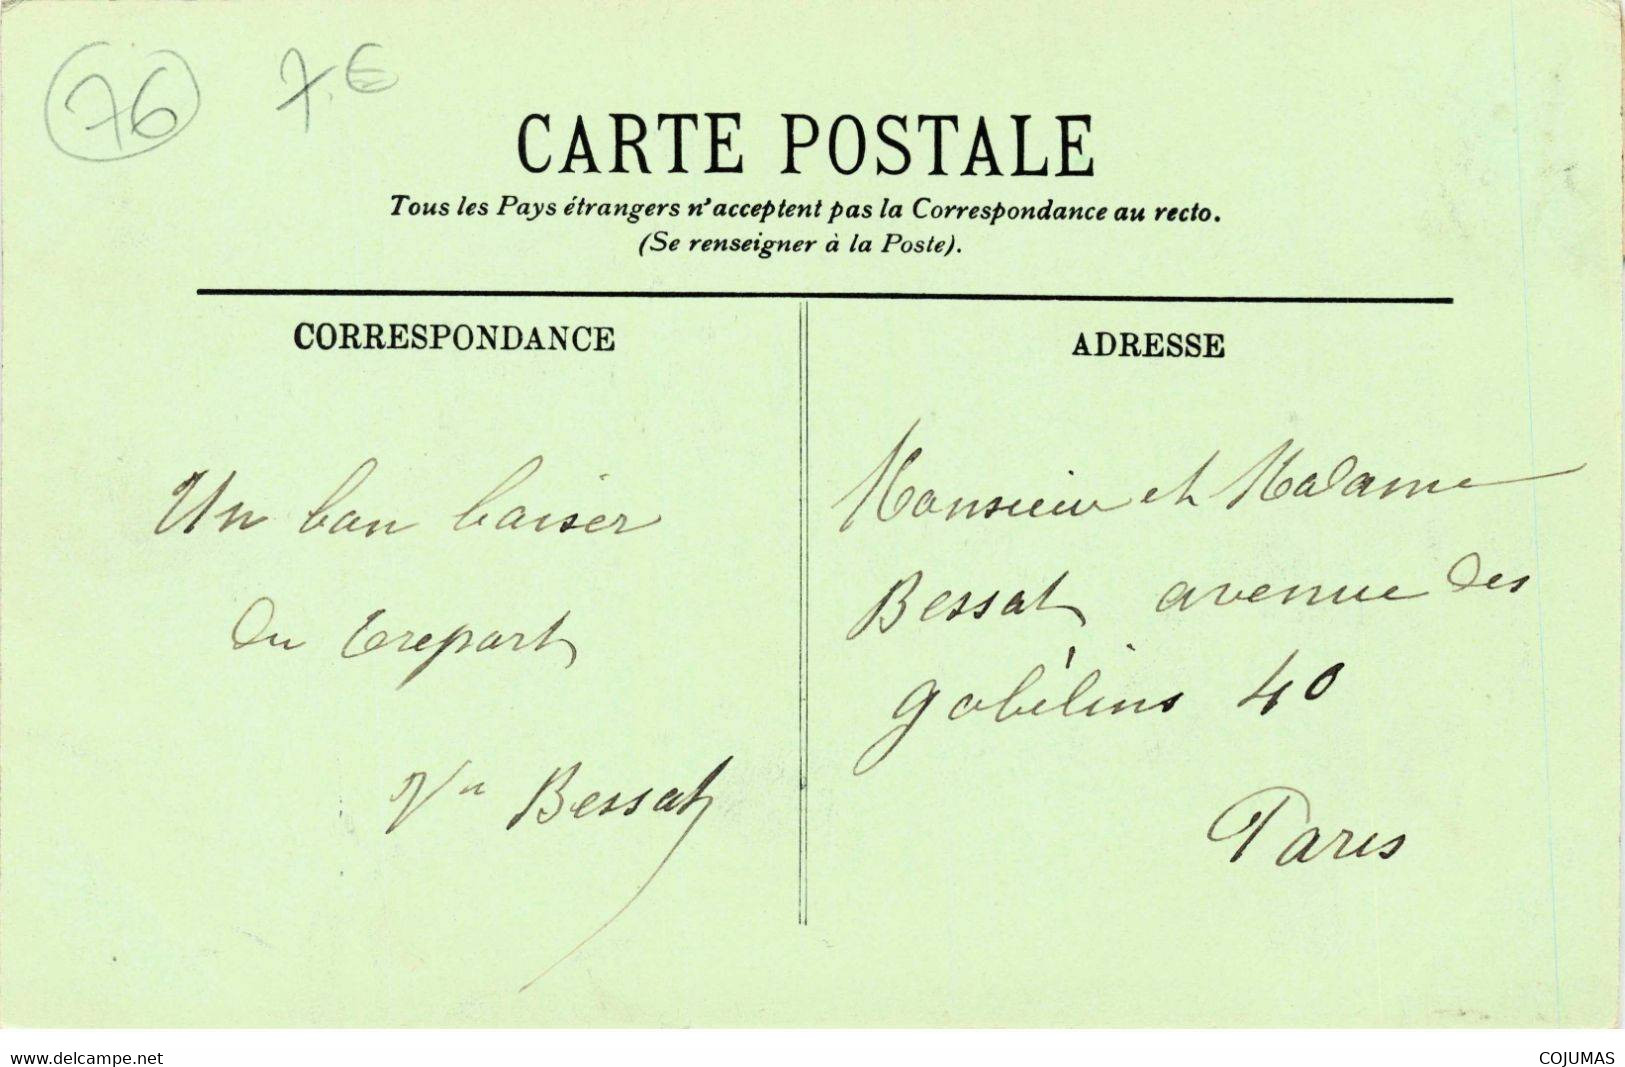 76 7.€
CARTE POSTALE
Tous les Pays étrangers n'acceptent pas la Correspondance au recto.
(Se renseigner à la Poste).
CORRESPONDANCE
Un bon baiser
du Treport
Vn Bessat
ADRESSE
Monsieur et Madame
Bessat avenue des
gobélins 40
Paris
www.delcampe.net
COJUMAS